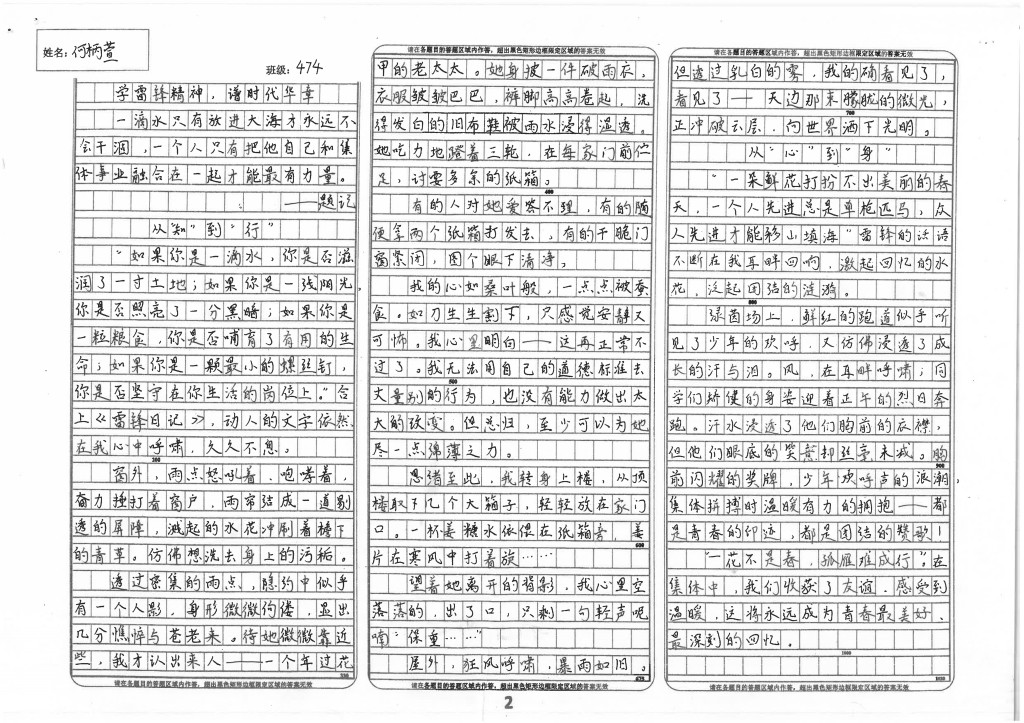 姓名：何柄萱
班级：474
学雷锋精神，谱时代华章
一滴水只有放进大海才永远不
会干涸，一个人只有把他自己和集
体事业融合在一起才能最有力量。
——题记
从“知”到“行”
“如果你是一滴水，你是否滋
润了一寸土地；如果你是一线阳光，
你是否照亮了一分黑暗；如果你是
一粒粮食，你是否哺育了有用的生
命；如果你是一颗最小的螺丝钉，
你是否坚守在你生活的岗位上。”合
上《雷锋日记》，动人的文字依然
在我心中呼啸，久久不息。
200
窗外，雨点怒吼着，咆哮着，
奋力捶打着窗户，雨帘结成一道剔
透的屏障，溅起的水花冲刷着檐下
的青草。仿佛想洗去身上的污秽。
透过密集的雨点，隐约中似乎
有一个人影，身形微微佝偻，显出
几分憔悴与苍老来。待她微微靠近
些，我才认出来人——一个年过花
330
请在各题目的答题区域内作答，超出黑色矩形边框限定区域的答案无效
请在各题目的答题区域内作答，超出黑色矩形边框限定区域的答案无效
甲的老太太。她身披一件破雨衣，
衣服皱皱巴巴，裤脚高高卷起，洗
得发白的旧布鞋被雨水浸得湿透。
她吃力地蹬着三轮，在每家门前伫
足，讨要多余的纸箱。
400
有的人对她爱答不理，有的随
便拿两个纸箱打发去，有的干脆门
窗紧闭，图个眼下清净。
我的心如桑叶般，一点点被蚕
食。如刀生生割下，只感觉安静又
可怖。我心里明白——这再正常不
过了。我无法用自己的道德标准去
500
丈量别的行为，也没有能力做出太
大的改变。但总归，至少可以为她
尽一点绵薄之力。
思绪至此，我转身上楼，从顶
楼取下几个大箱子，轻轻放在家门
口。一杯姜糖水依偎在纸箱旁，姜
600
片在寒风中打着旋……
望着她离开的背影，我心里空
落落的，出了口，只剩一句轻声呢
喃“保重……”
屋外，狂风呼啸，暴雨如旧。
675
请在各题目的答题区域内作答，超出黑色矩形边框限定区域的答案无效
请在各题目的答题区域内作答，超出黑色矩形边框限定区域的答案无效
但透过乳白的雾，我的确看见了，
看见了——天边那束朦胧的微光，
700
正冲破云层，向世界洒下光明。
从“心”到“身”
“一朵鲜花打扮不出美丽的春
天，一个人先进总是单枪匹马，众
人先进才能移山填海”雷锋的话语
不断在我耳畔回响，激起回忆的水
花，泛起团结的涟漪。
800
绿茵场上，鲜红的跑道似乎听
见了少年的欢呼，又仿佛浸透了成
长的汗与泪。风，在耳畔呼啸；同
学们矫健的身姿迎着正午的烈日奔
跑。汗水浸透了他们胸前的衣襟，
但他们眼底的笑意却丝毫未减。胸
900
前闪耀的奖牌，少年欢呼声的浪潮，
集体拼搏时温暖有力的拥抱——都
是青春的印迹，都是团结的赞歌！
“一花不是春，孤雁难成行”。在
集体中，我们收获了友谊，感受到
温暖，这将永远成为青春最美好、
最深刻的回忆。
1000
1020
请在各题目的答题区域内作答，超出黑色矩形边框限定区域的答案无效
2